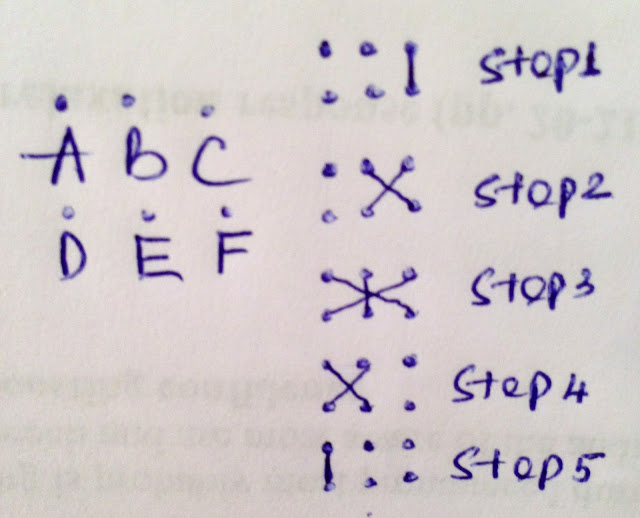 A B C
D E F
Step1
Step2
Step3
Step4
Step5